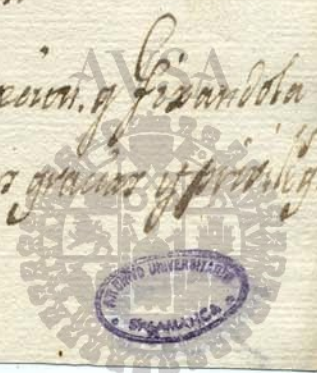 AVSA
y fixandola
gracias y privileg
ARCHIVO UNIVERSITARIO
SALAMANCA